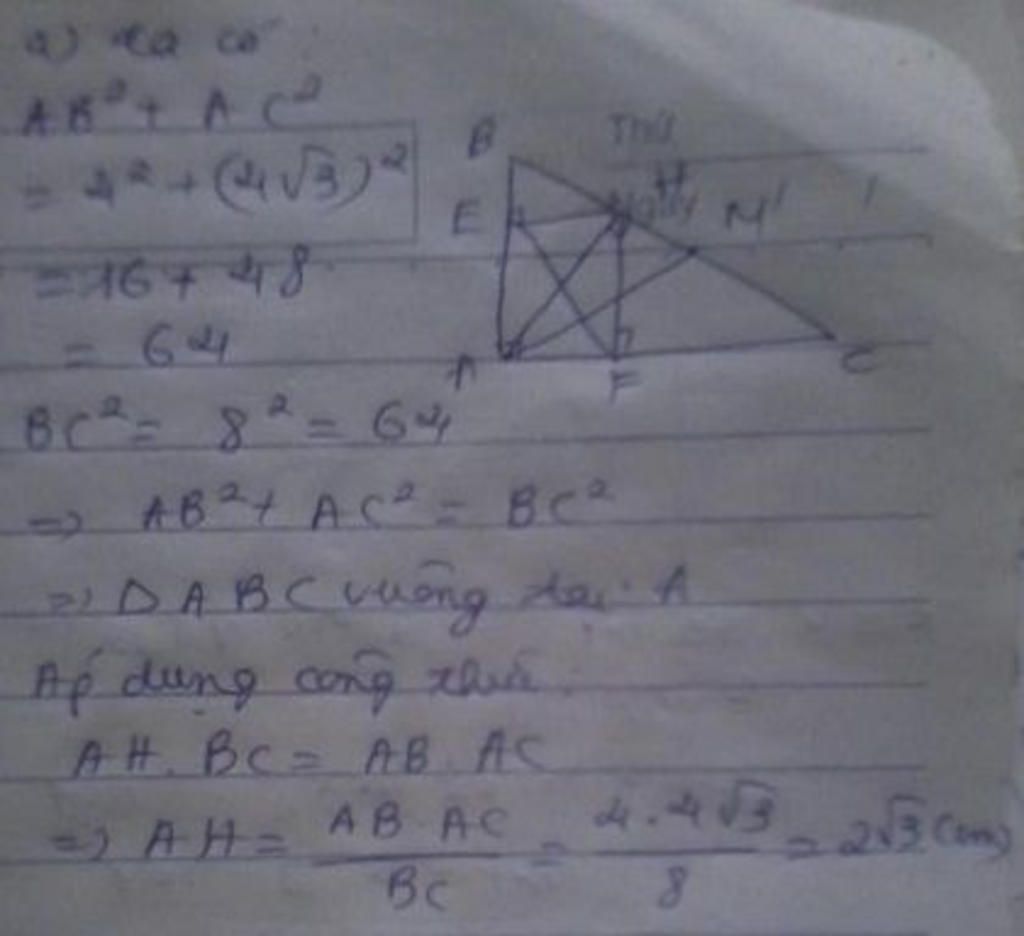 a) Ta có
AB² + AC²
= 4² + (4√3)²
= 16 + 48
= 64
B
E
H
M
A
F
C
BC² = 8² = 64
=> AB² + AC² = BC²
=> Δ ABC vuông tại A
Áp dụng công thức:
AH. BC = AB. AC
=> AH = AB. AC / BC = 4.4√3 / 8 = 2√3 (cm)